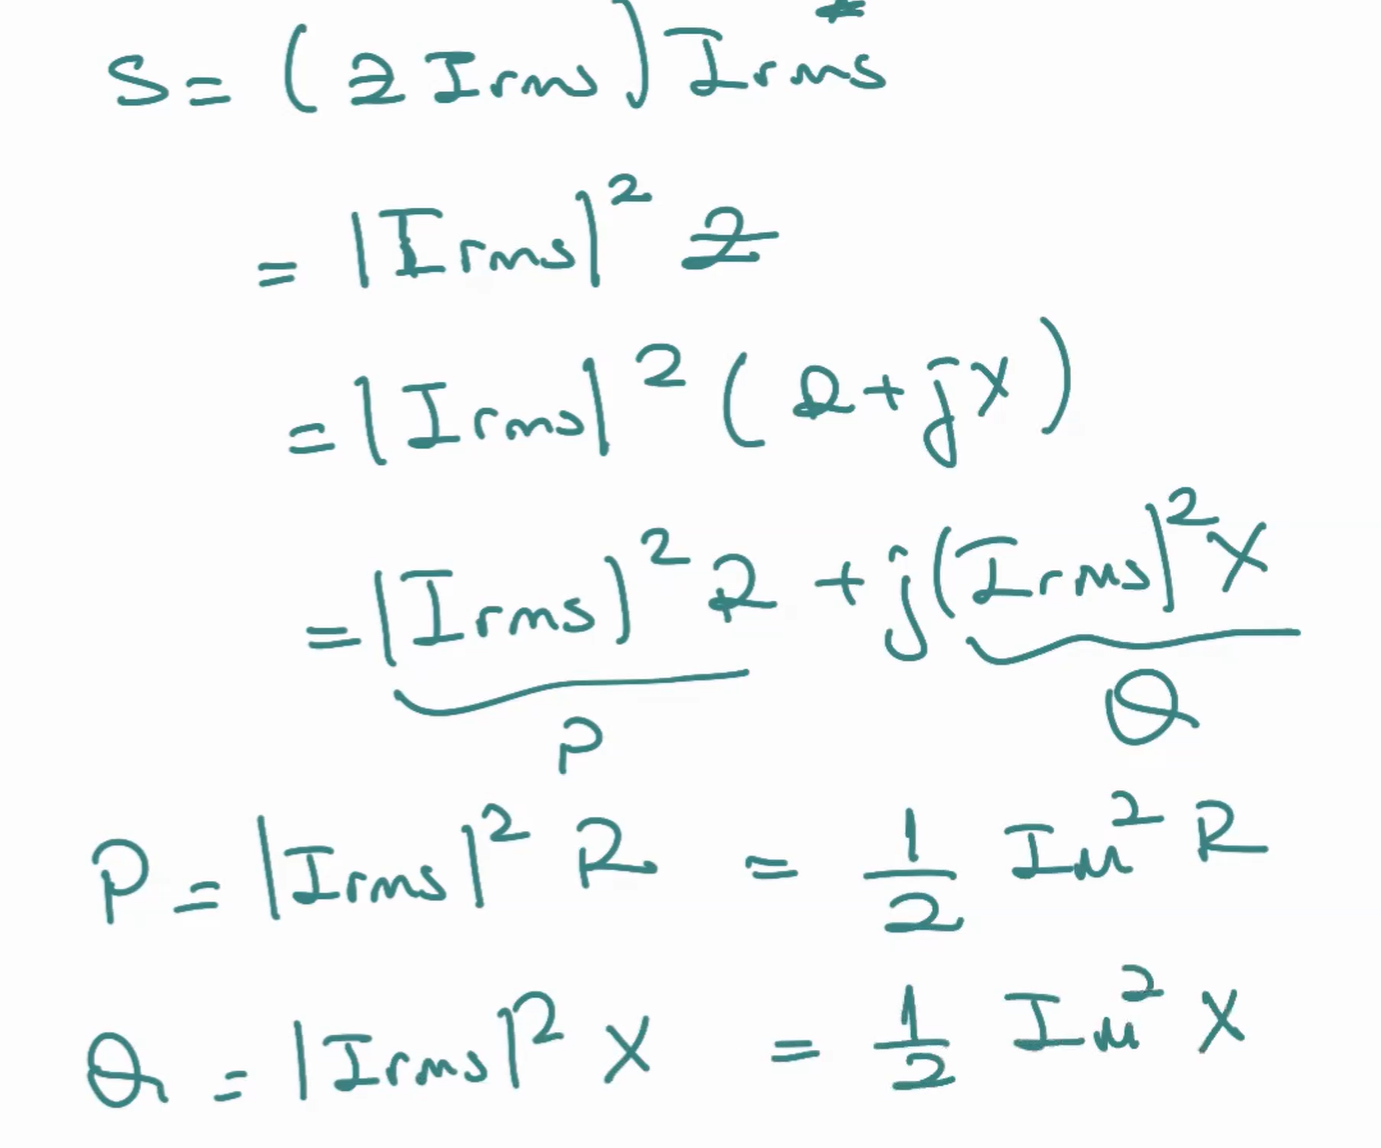 S = (Z Irms) Irms*
= |Irms|² Z
= |Irms|² (R + jX)
= |Irms|² R + j|Irms|² X
P Q
P = |Irms|² R = 1/2 Im² R
Q = |Irms|² X = 1/2 Im² X